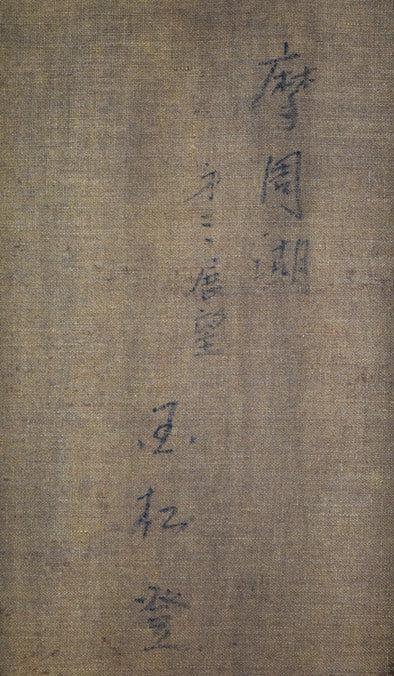 摩周湖
第三展望
国松登